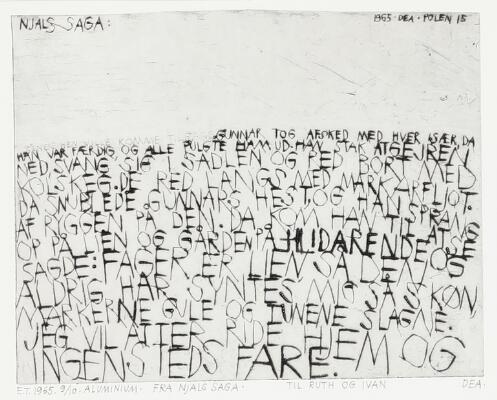 NJALS SAGA:
1965·DEA·POLEN 15
GUNNAR TOG AFSKED MED HVER ISÆR, DA
HAN VAR FÆRDIG, OG ALLE FULGTE HAM UD. HAN STAK ATGEJREN
NED SVANG SIG I SADLEN OG RED BORT MED
KOLSKEG. DE RED LANGS MED MARKARFLJOT.
DA SNUBLEDE GUNNARS HEST, OG HAN SPRANG
AF RYGGEN PÅ DEN. DA KOM HAN TIL AT SE
OP PÅ LIEN OG GÅRDEN PÅ HLIDARENDE OG
SAGDE: FAGER ER LIEN SÅ DEN
ALDRIG HAR SYNTES MIG SÅ SKØN
MARKERNE GULE OG TUNENE SLAGNE.
JEG VIL ATTER RIDE HJEM OG
INGENSTEDS FARE.
E.T. 1965. 9/10. ALUMINIUM· FRA NJALS SAGA· TIL RUTH OG IVAN DEA·